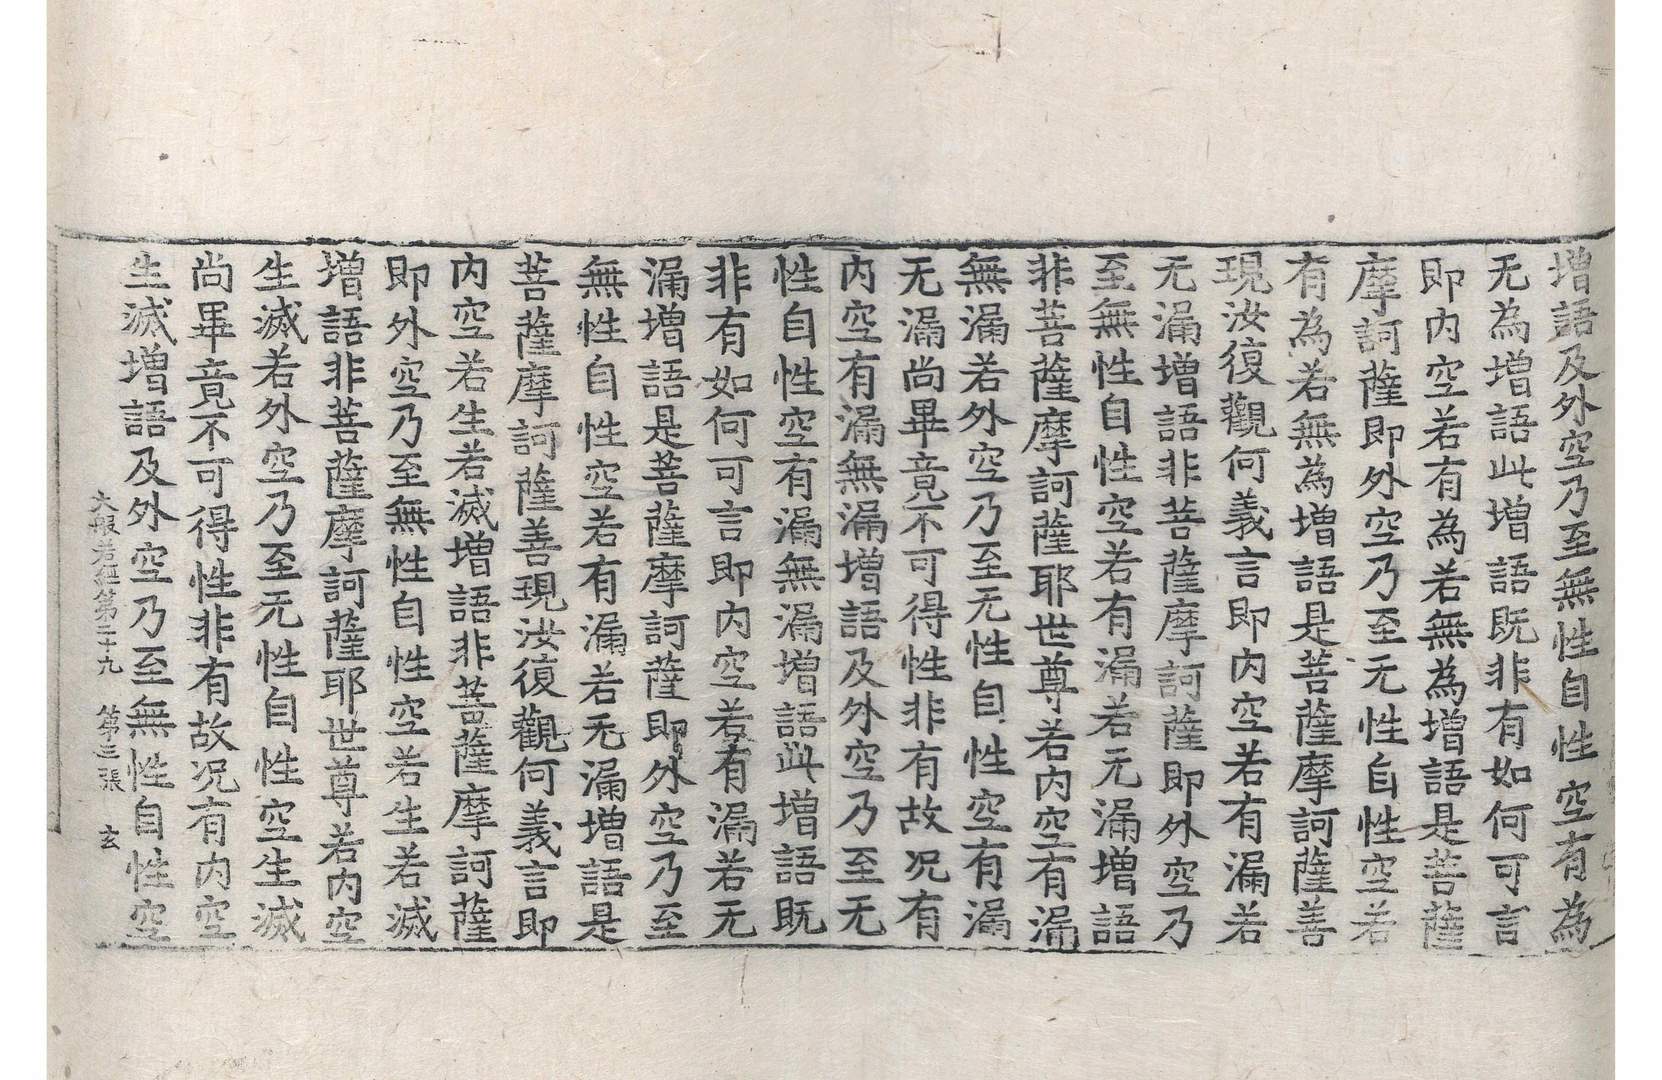 增語及外空乃至無性自性空有為
无為增語此增語既非有如何可言
即内空若有為若無為增語是菩薩
摩訶薩即外空乃至无性自性空若
有為若無為增語是菩薩摩訶薩善
現汝復觀何義言即内空若有漏若
无漏增語非菩薩摩訶薩即外空乃
至無性自性空若有漏若无漏增語
非菩薩摩訶薩耶世尊若内空有漏
無漏若外空乃至无性自性空有漏
无漏尚畢竟不可得性非有故况有
内空有漏無漏增語及外空乃至无
性自性空有漏無漏增語此增語既
非有如何可言即内空若有漏若无
漏增語是菩薩摩訶薩即外空乃至
無性自性空若有漏若无漏增語是
菩薩摩訶薩善現汝復觀何義言即
内空若生若滅增語非菩薩摩訶薩
即外空乃至無性自性空若生若滅
增語非菩薩摩訶薩耶世尊若内空
生滅若外空乃至无性自性空生滅
尚畢竟不可得性非有故况有内空
生滅增語及外空乃至無性自性空
大般若經第二十九 第三張 玄